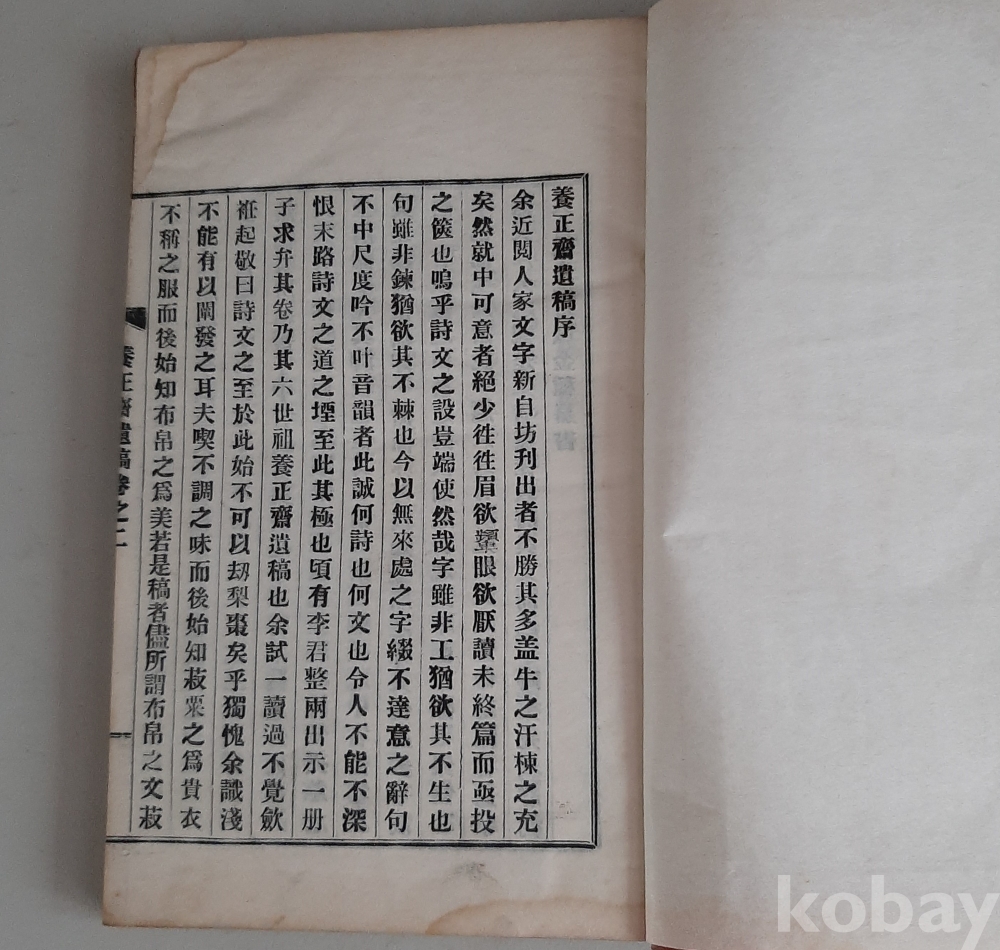 養正齋遺稿序
余近閱人家文字新自坊刊出者不勝其多盖牛之汗棟之充
矣然就中可意者絕少徃徃眉欲顰眼欲厭讀未終篇而亟投
之篋也嗚乎詩文之設豈端使然哉字雖非工猶欲其不生也
句雖非鍊猶欲其不棘也今以無來處之字綴不達意之辭句
不中尺度吟不叶音韻者此誠何詩也何文也令人不能不深
恨末路詩文之道之堙至此其極也頃有李君整兩出示一册
子求弁其卷乃其六世祖養正齋遺稿也余試一讀過不覺歛
袵起敬曰詩文之至於此始不可以刼梨棗矣乎獨愧余識淺
不能有以闡發之耳夫喫不調之味而後始知菽粟之爲貴衣
不稱之服而後始知布帛之爲美若是稿者儘所謂布帛之文菽
養正齋遺稿卷之二
kobay